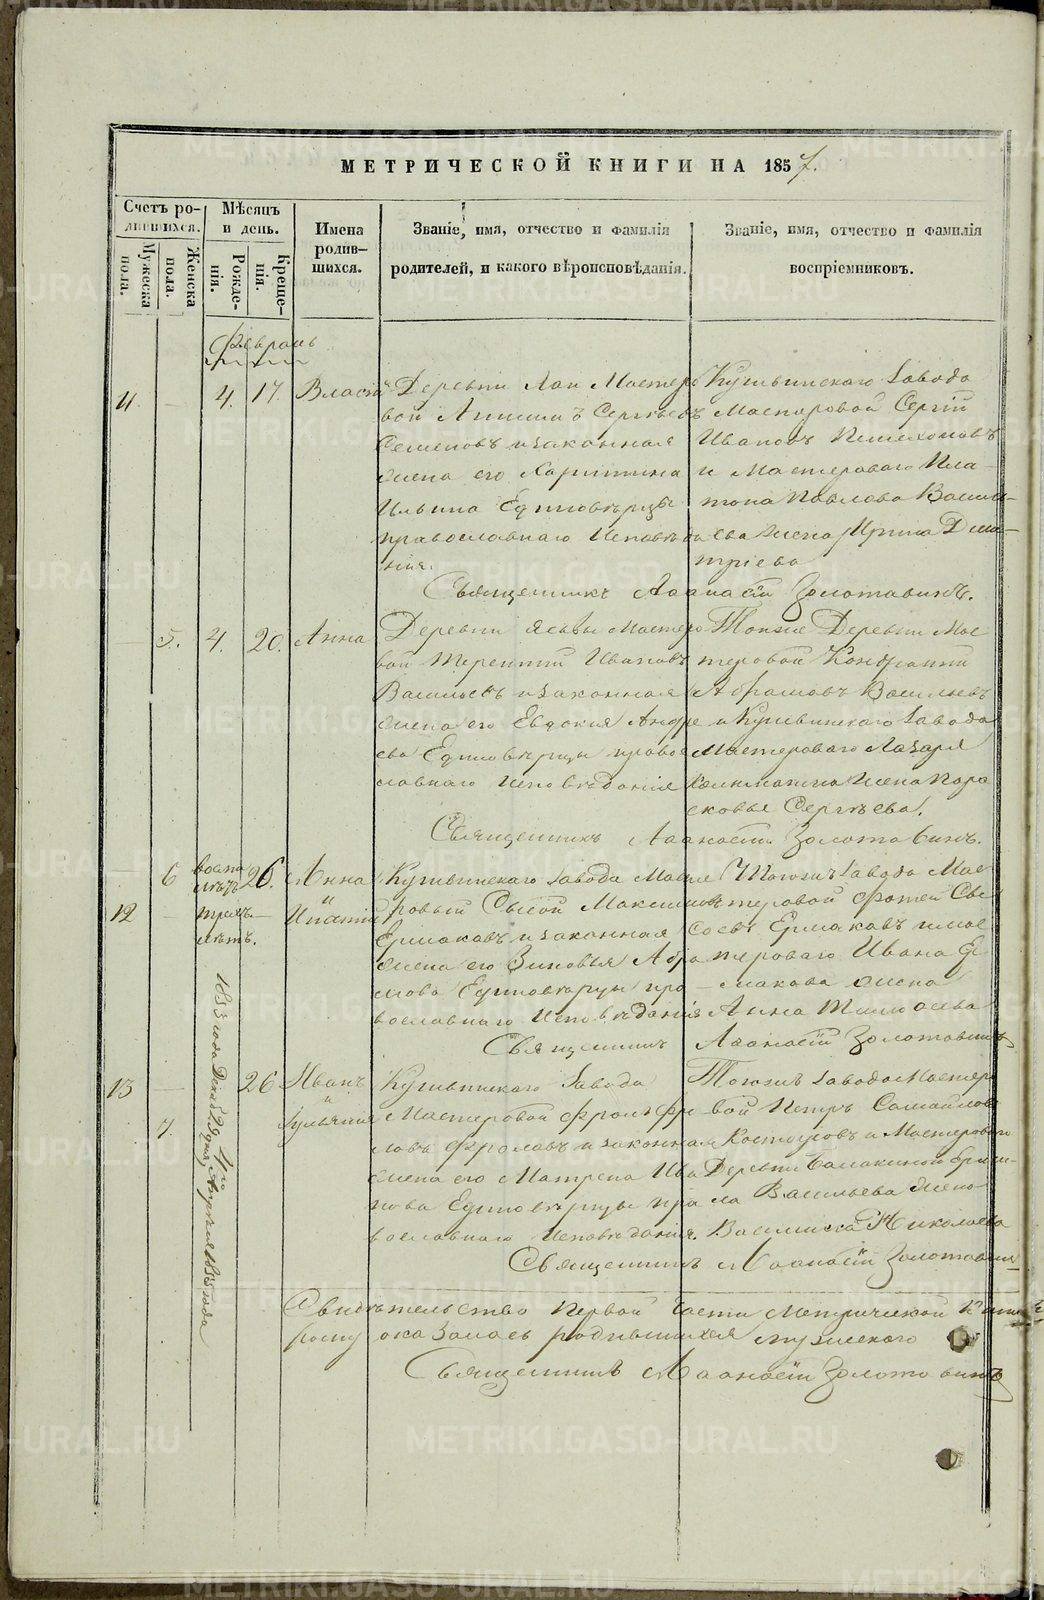 МЕТРИЧЕСКОЙ КНИГИ НА 1857.
Счетъ ро-
дившихся.
Мужеска
пола.
Женска
пола.
Мѣсяцъ
и день.
Рожде-
нія.
Креще-
нія.
Имена
родив-
шихся.
Званіе, имя, отчество и фамилія
родителей, и какого вѣроисповѣданія.
Званіе, имя, отчество и фамилія
воспріемниковъ.
Февраль
11. — 4. 17. Власій
Деревни Лаи Мастеро
вой Сергѣевъ
Семеновъ и законная
жена его Харитина
Ильина Единовѣрцы
православнаго Исповѣда
нія.
Кушвинскаго Завода
Мастеровой Сергій
Ивановъ Пешехоновъ
и Мастероваго Пла-
тона Павлова
ева жена Ирина Дми-
тріева
Священникъ Аѳанасій Золотавинъ.
— 5. 4. 20. Анна
Деревни Мастеро
вой Терентій Ивановъ
Васильевъ и законная
жена его Евдокия Андре
ева Единовѣрцы право
славнаго Исповѣданія
Тойже Деревни Мас
теровой Кондратій
Абрамовъ Васильевъ
и Кушвинскаго Завода
Мастероваго Лазаря
жена Пара
сковья Сергѣева.
Священникъ Аѳанасій Золотавинъ.
6 26. Анна
12 и
Ипатій
трехъ
лѣтъ.
Кушвинскаго Завода Масте
ровый Сысой Максимовъ
Ермаковъ и законная
жена его Зиновья Абра
мова Единовѣрцы пра-
вославнаго Исповѣданія
Тогоже Завода Мас
теровой Фотей Сы
соевъ Ермаковъ и мас
тероваго Ивана Ер
макова жена
Анна Тимоѳеева
Священникъ Аѳанасій Золотавинъ
13 — 26 Иванъ
и
7. Ульянія
1853 года Декабря Апреля 1855 года
Кушвинскаго Завода
Мастеровой Фролъ
Фроловъ и законная
жена его Матрена Ива
нова Единовѣрцы пра
вославнаго Исповѣданія.
Тогоже Завода Мастеро
вой Петръ Самайловъ
Костоуровъ и Мастероваго
Деревни Балакиной
ла Васильева жена
Василисса Николаева
Священникъ Аѳанасій Золотавинъ
Свидѣтельство Первой Части Метрической
оказалось родившихся мужескаго
Священникъ Аѳанасій Золотавинъ
METRIKI.GASO-URAL.RU